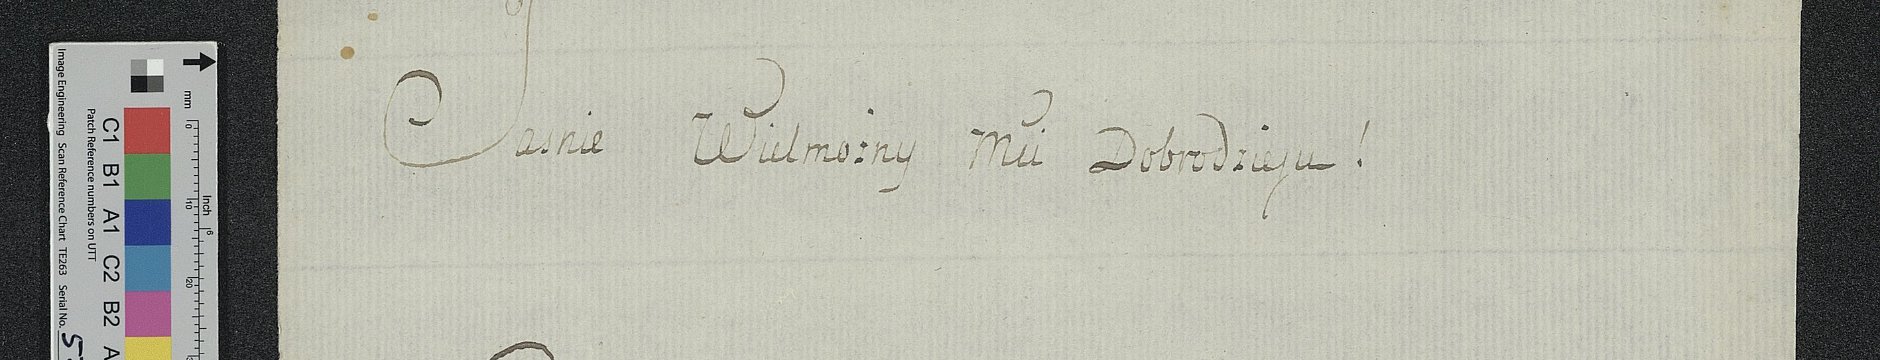 Jasnie Wielmożny Mci Dobrodzieju!
Image Engineering Scan Reference Chart TE263 Serial No.
Patch Reference numbers on UTT
C1 B1 A1 C2 B2 A
mm
0 10 20
Inch